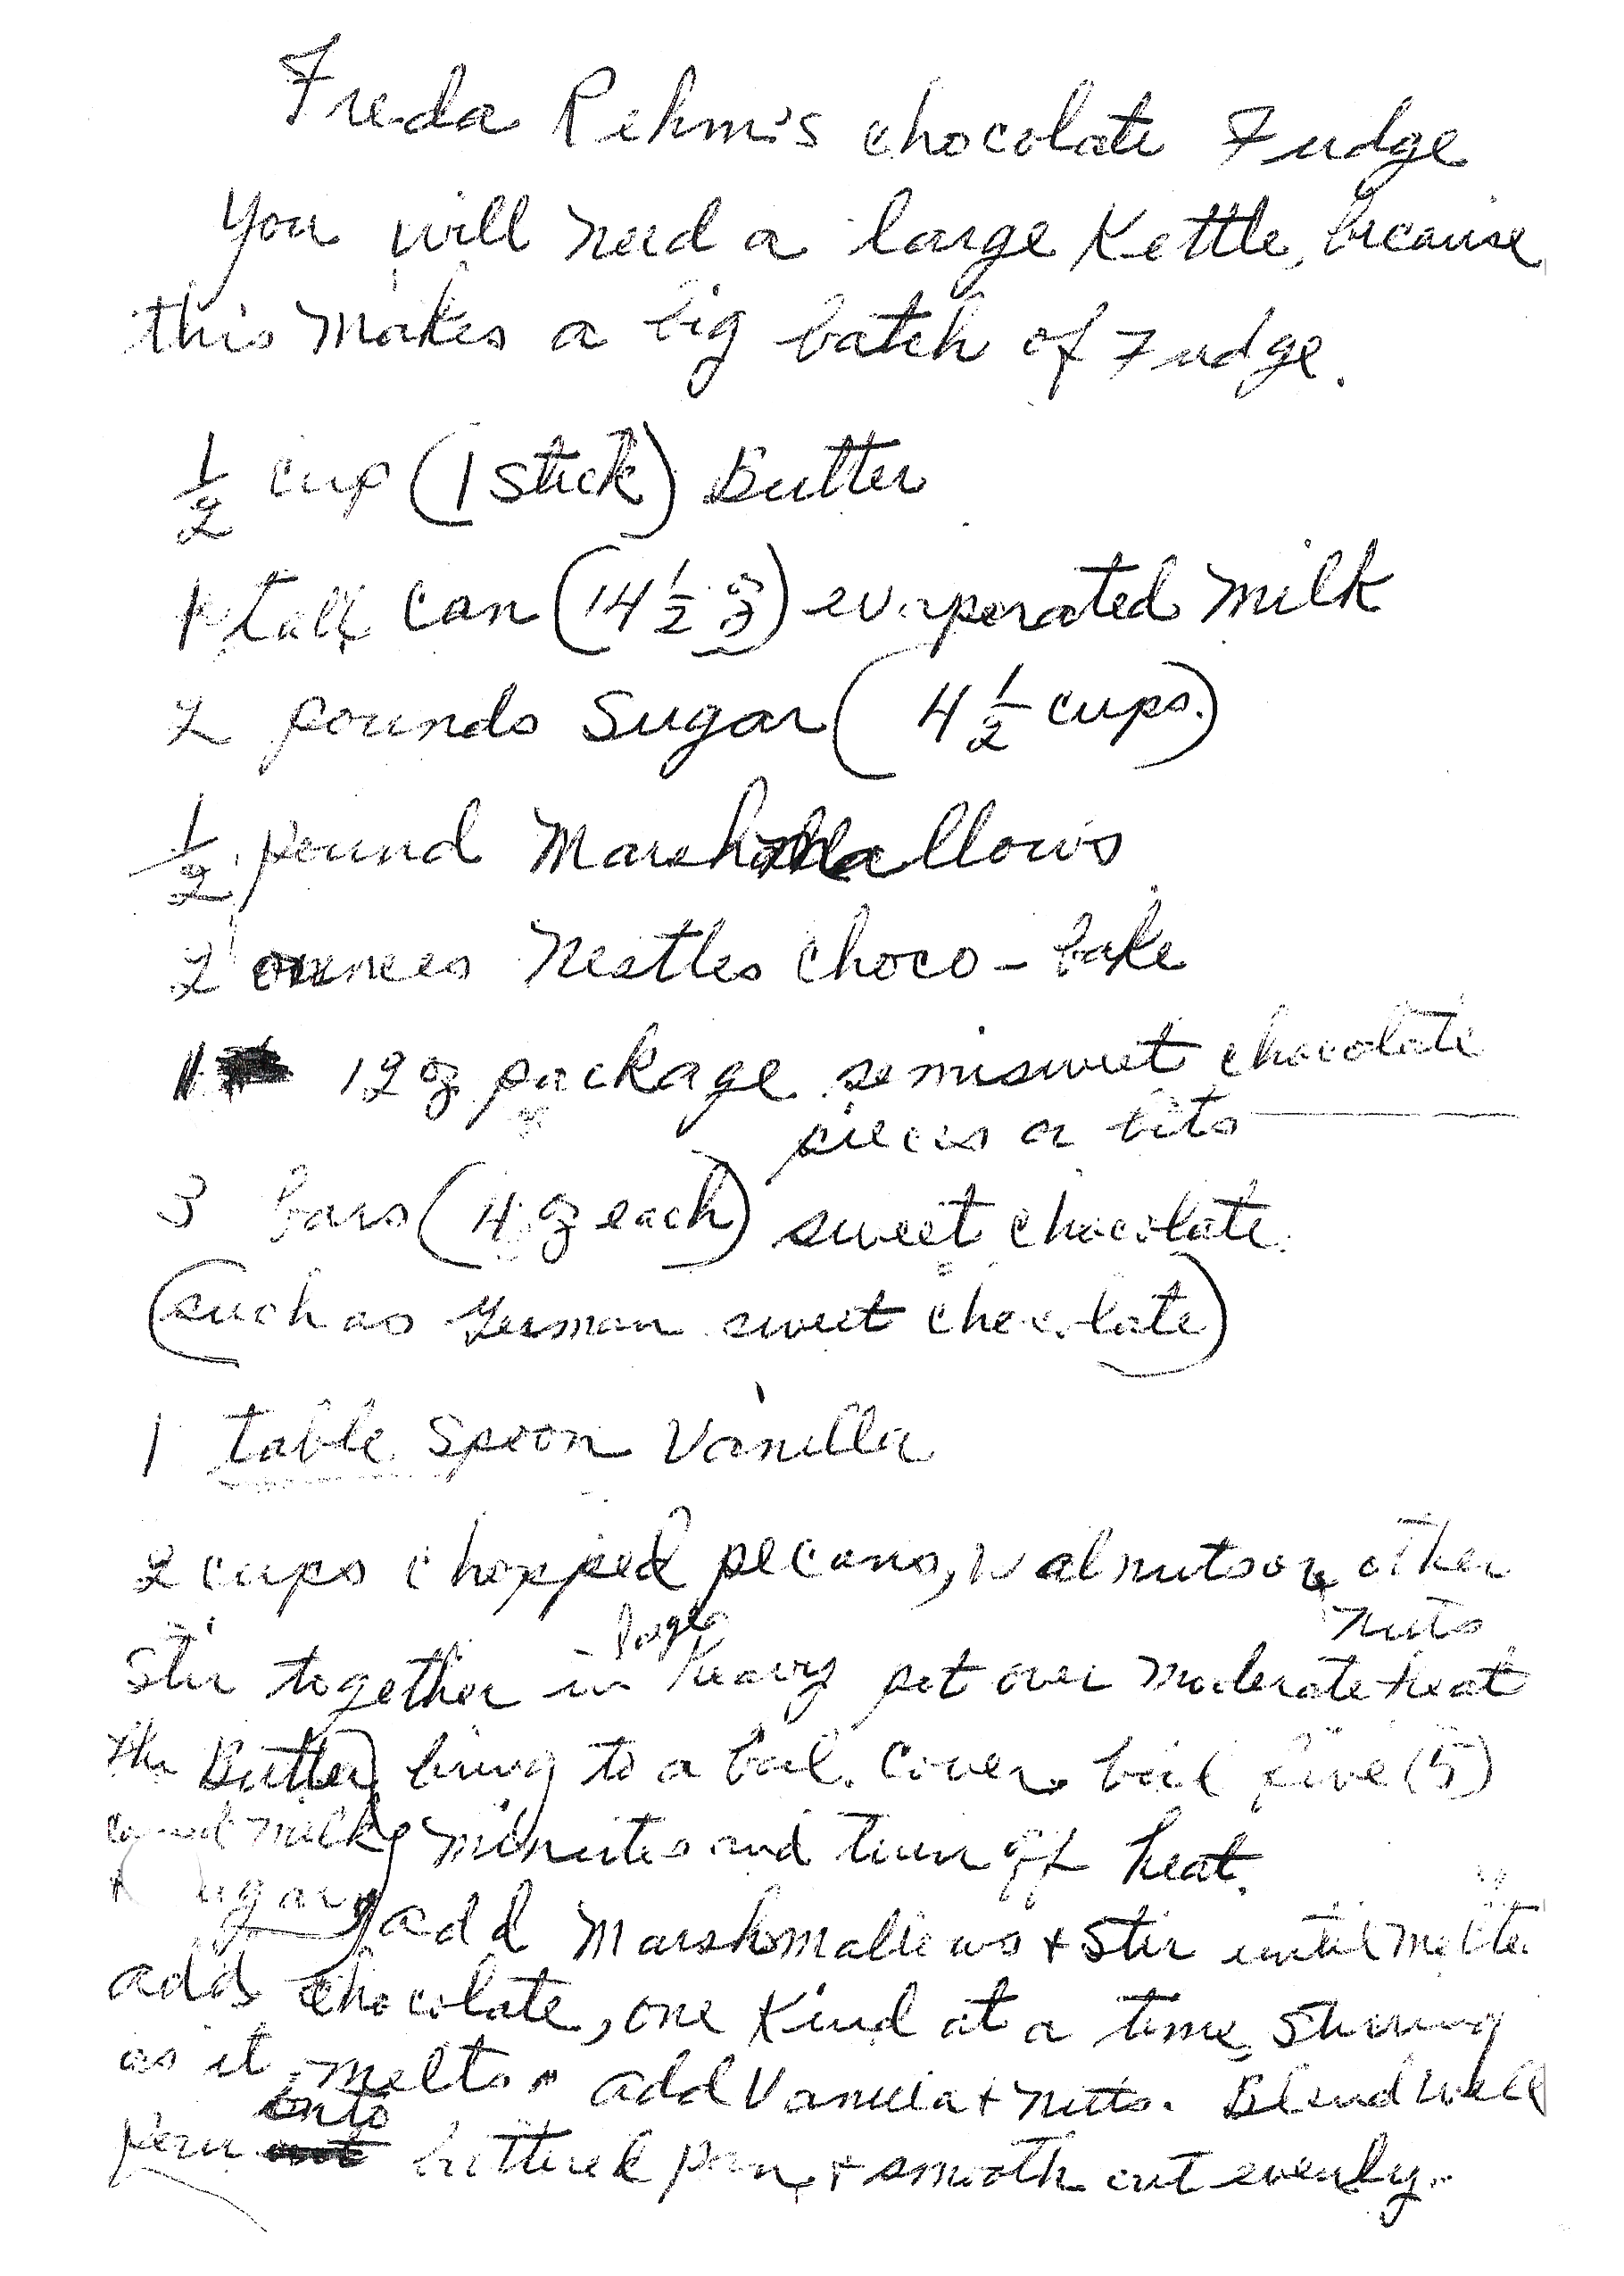 Freda Rehm's chocolate Fudge
You will need a large Kettle, because
this makes a big batch of Fudge.
1/2 cup (1 stick) Butter
1 tall can (14 1/2 oz) evaporated milk
2 pounds Sugar (4 1/2 cups.)
1/2 pound Marshmallows
2 ounces Nestles choco-bake
1 12 oz package semisweet chocolate
pieces or bits
3 bars (4 oz each) sweet chocolate
(such as German sweet chocolate)
1 table spoon Vanilla
2 cups chopped pecans, walnuts or other
nuts
large
Stir together in heavy pot over moderate heat
the Butter, bring to a boil. Cover. boil five (5)
milk minutes and turn off heat.
& sugar
add Marshmallows + stir until melte
add chocolate, one Kind at a time, stirring
as it melts. add Vanilla + nuts. Blend well
onto
buttered pan, + smooth out evenly.